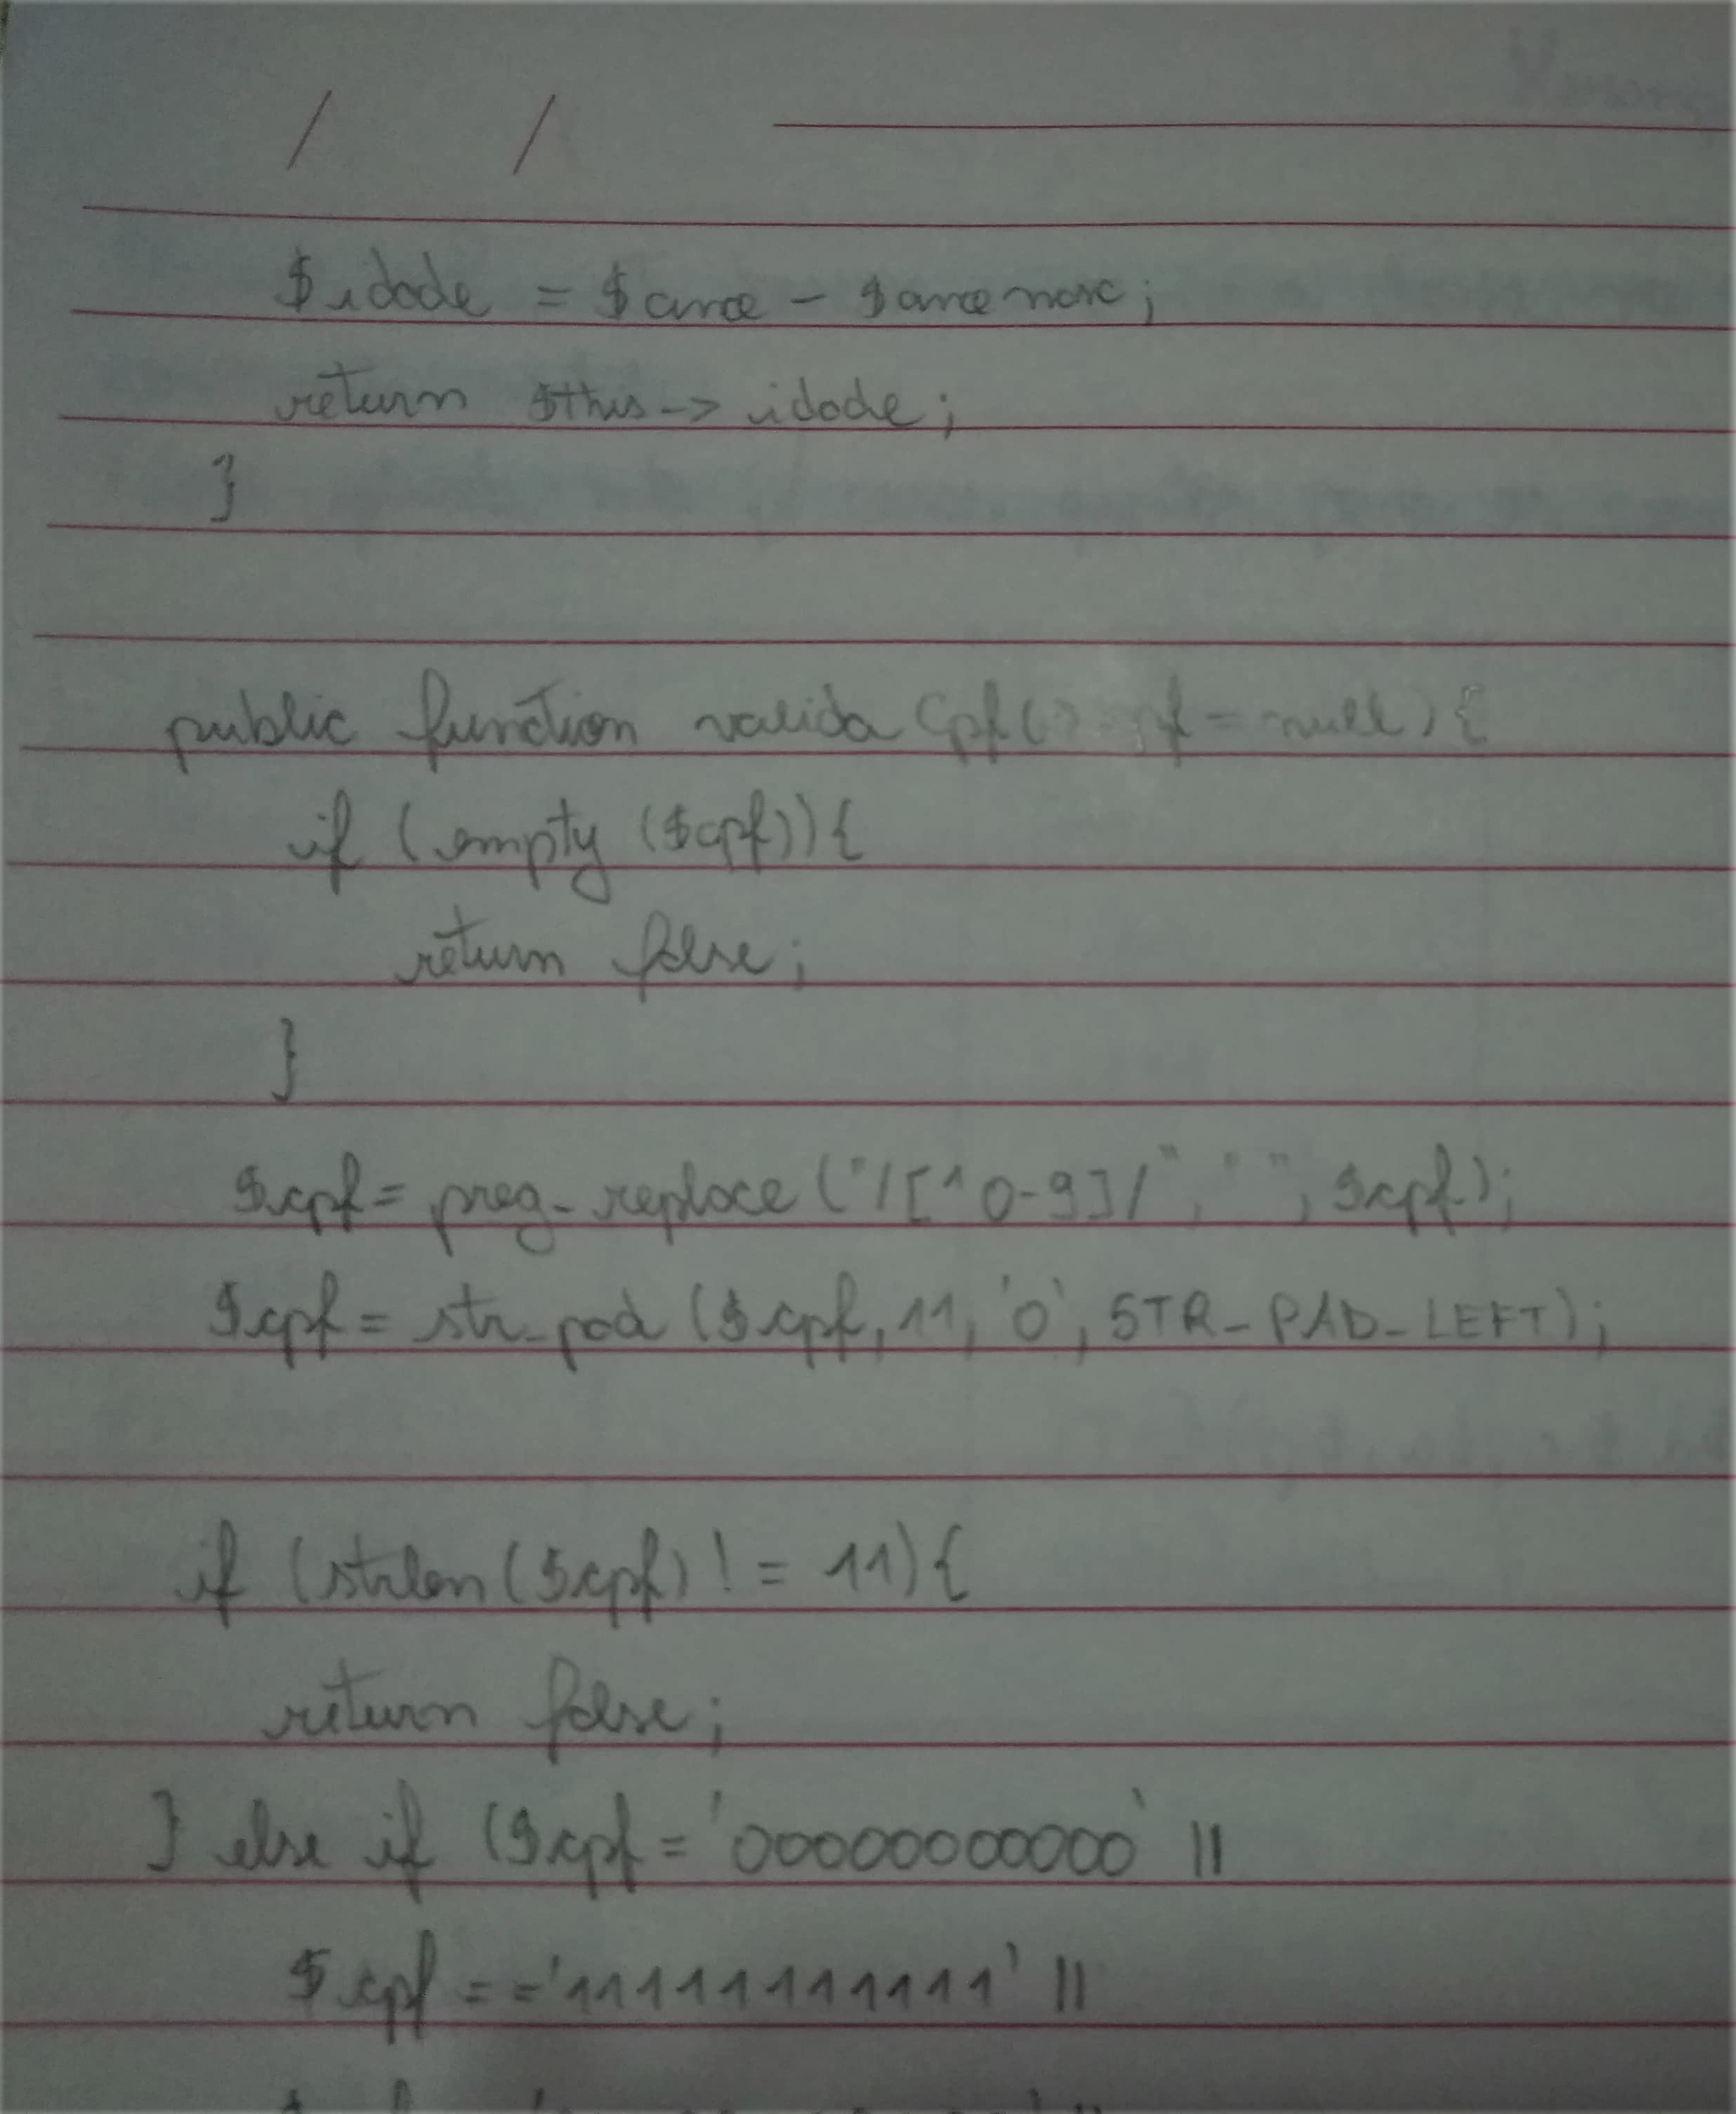 $idade = $ano - $anonasc;
return $this-> idade;
}
public function valida Cpf($cpf = null) {
if (empty ($cpf)) {
return false;
}
$cpf = preg_replace ("/[^0-9]/", "", $cpf);
$cpf = str_pad ($cpf, 11, '0', STR_PAD_LEFT);
if (strlen ($cpf) != 11) {
return false;
} else if ($cpf = '00000000000' ||
$cpf == '11111111111' ||